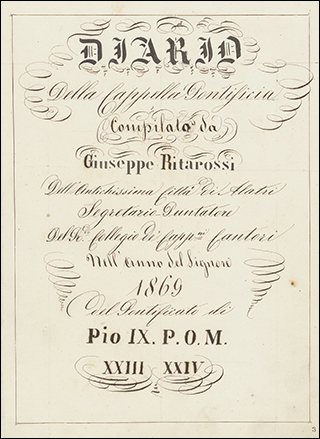 DIARIO
Della Cappella Pontificia
Compilato da
Giuseppe Ritarossi
Dell'Antichissima Città di Alatri
Segretario Puntatore
Del R. Collegio di Capp.ni Cantori
Nell'Anno del Signore
1869
del Pontificato di
Pio IX. P. O. M.
XXIII XXIV